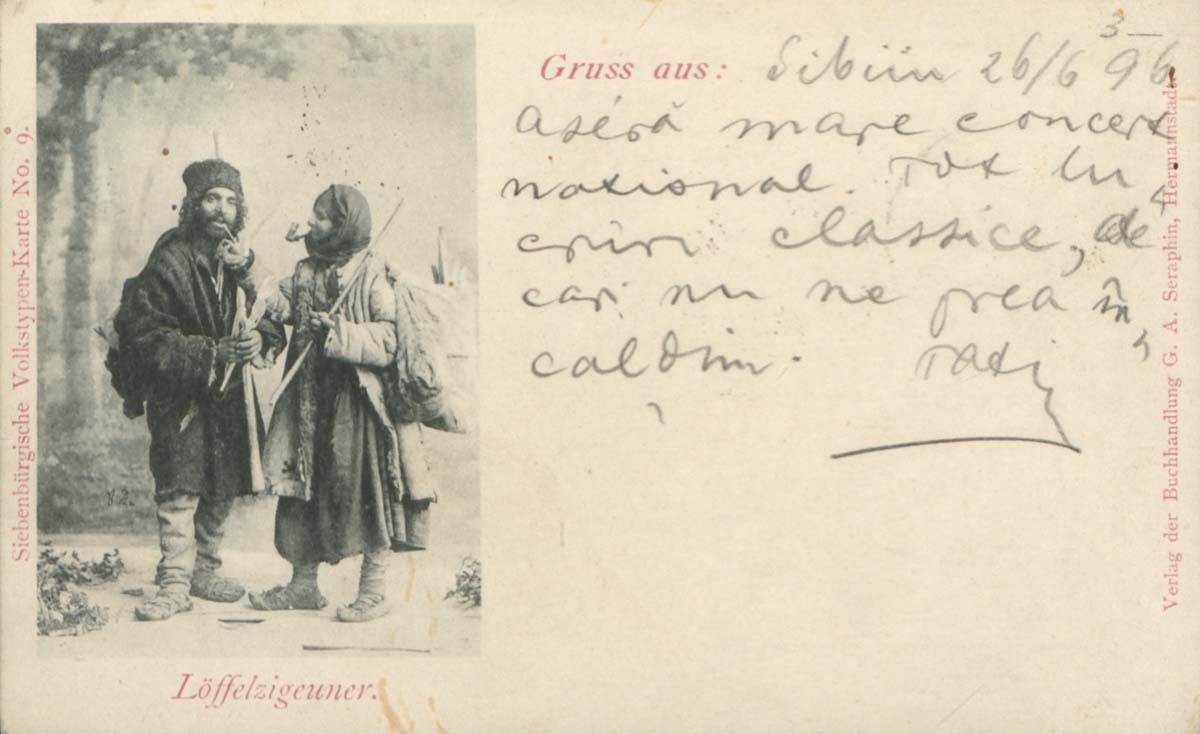 Siebenbürgische Volkstypen-Karte No. 9.
Löffelzigeuner.
3—
Gruss aus: Sibiiu 26/6 96
Aséră mare concert
national. Tot lu
cruri classice, de
cari nu ne prea în
căldim. Tati
Verlag der Buchhandlung G. A. Seraphin, Hermannstadt.